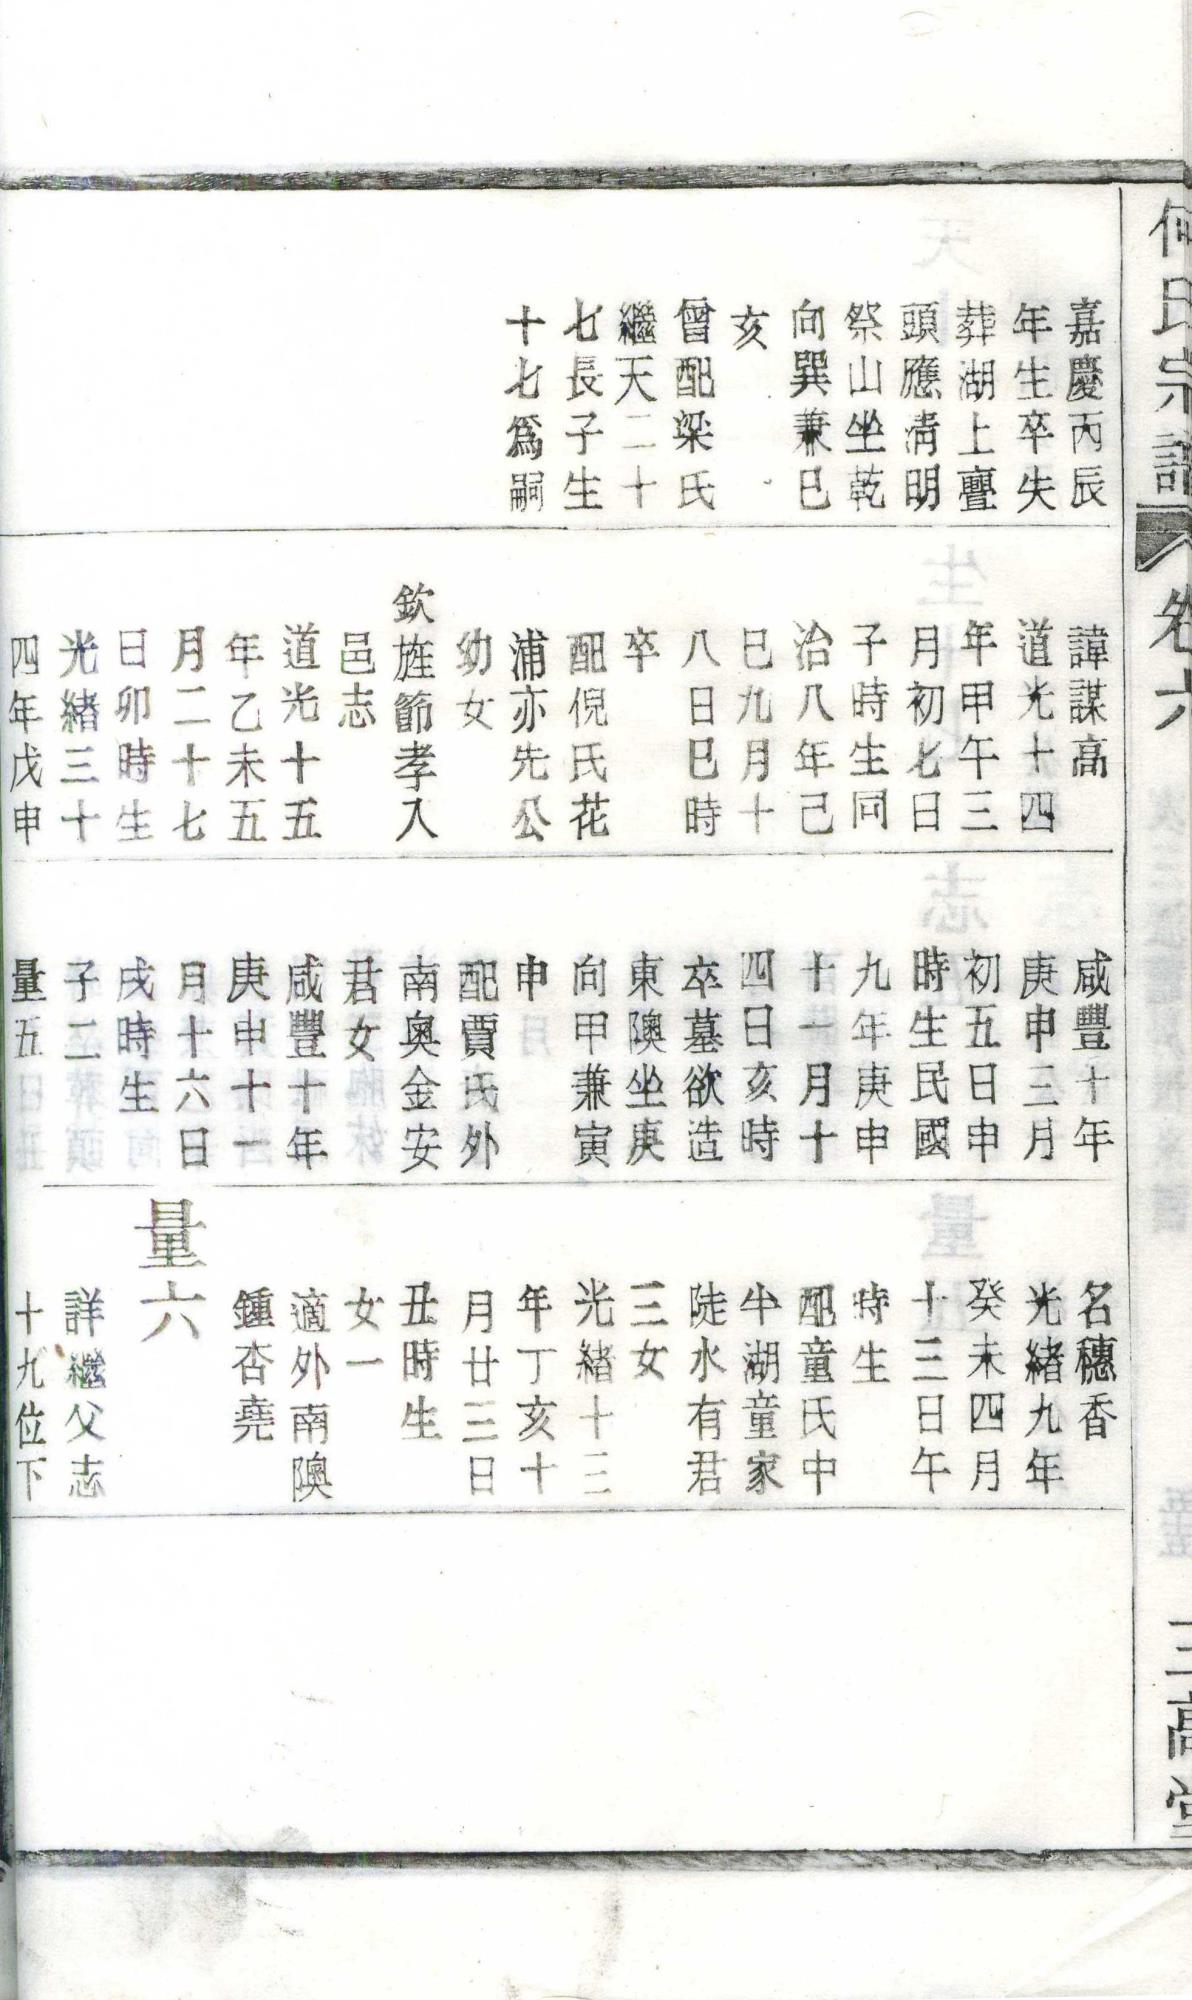 何氏宗譜
卷六
三高堂
嘉慶丙辰
年生卒失
葬湖上亹
頭應清明
祭山坐乾
向巽兼巳
亥
曾配梁氏
繼天二十
七長子生
十七爲嗣
諱謀高
道光十四
年甲午三
月初七日
子時生同
治八年己
巳九月十
八日巳時
卒
配倪氏花
浦亦先公
幼女
欽旌節孝入
邑志
道光十五
年乙未五
月二十七
日卯時生
光緒三十
四年戊申
咸豐十年
庚申三月
初五日申
時生民國
九年庚申
十一月十
四日亥時
卒墓欲造
東隩坐庚
向甲兼寅
申
配賈氏外
南奥金安
君女
咸豐十年
庚申十一
月十六日
戌時生
子二
量五
名穗香
光緒九年
癸未四月
十三日午
時生
配童氏中
牛湖童家
陡水有君
三女
光緒十三
年丁亥十
月廿三日
丑時生
女一
適外南隩
鍾杏堯
量六
詳繼父志
十九位下